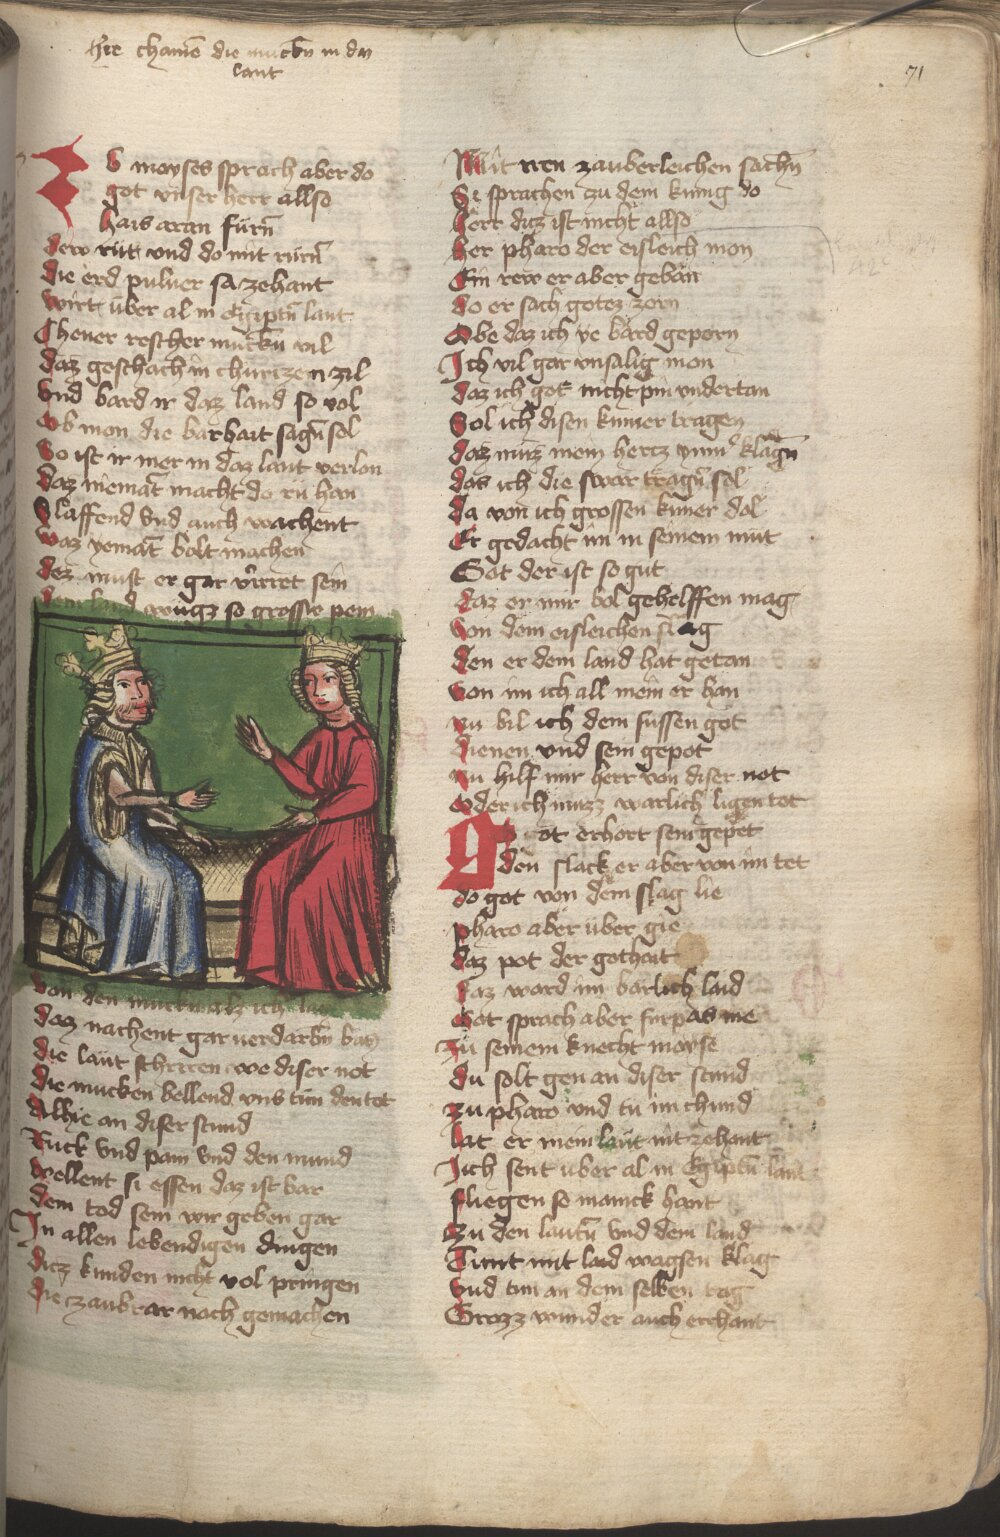 hie chamē die muckn in daz
lant
71
Zv moyses sprach aber do
got vnser herr allso
hais aron fürn̄
dew rüt vnd do mit rürn̄
die erd puluer sa zehant
wirt über al in Egiptn̄ lant
Cheuer rescher muckn̄ vil
daz geschach in churtzen zil
vnd bard ir daz land so vol
Ob mon die barhait sagn̄ sol
So ist ir mer in daz lant verlon
daz niemāt macht do rü han
Slaffend vnd auch wachent
waz yemāt bolt machen
dez must er gar v̄irret sein
dem land wugz so grossew pein
von den mucken als ich
daz nachent gar uerdarbn̄ baz
die laüt schriren we diser not
die mucken bellend vns tün den tot
Alhie an diser stund
Ruck vnd pain vnd den mund
wellent si essen daz ist bar
dem tod sein wir geben gar
In allen lebendigen dingen
dicz kunden nicht vol pringen
die zaubrar noch gemachen
Mit iren zauberleichen sachn̄
Si sprachen zu dem kunig do
herr dicz ist nicht allso
her pharo der eisleich mon
Ein rew er aber geban
do er sach gotez zorn
Obe daz ich ye bard geporn
Ich vil gar vnsalig mon
daz ich got nicht pin vndertan
Sol ich disen kumer tragen
daz muz mein hertz ymm̄ klagn̄
das ich die swar tragn̄ sol
da von ich grossen kumer dol
Er gedacht im in seinem müt
Got der ist so gut
daz er mir bol gehelffen mag
von dem eisleichen slag
den er dem land hat getan
von im ich all mein er han
nu bil ich dem sussen got
dienen vnd sein gepot
nu hilf mir herr von diser not
Oder ich muzz warlich ligen tot
Do got erhort sein gepet
den slack er aber von im tet
do got von dem slag lie
pharo aber über gie
daz pot der gothait
daz ward im bärlich laid
Got sprach aber furpas me
Zu seinem knecht moyse
du solt gen an diser stund
zu pharo vnd tu im chund
lat er mein laüt nit zehant
Ich sent uber al in Egiptn̄ lant
fliegen so manick hant
Zu den lautn̄ vnd dem land
Timt mit laid wagsen klag
vnd tun an dem selben tag
Grozz wunder auch erchant